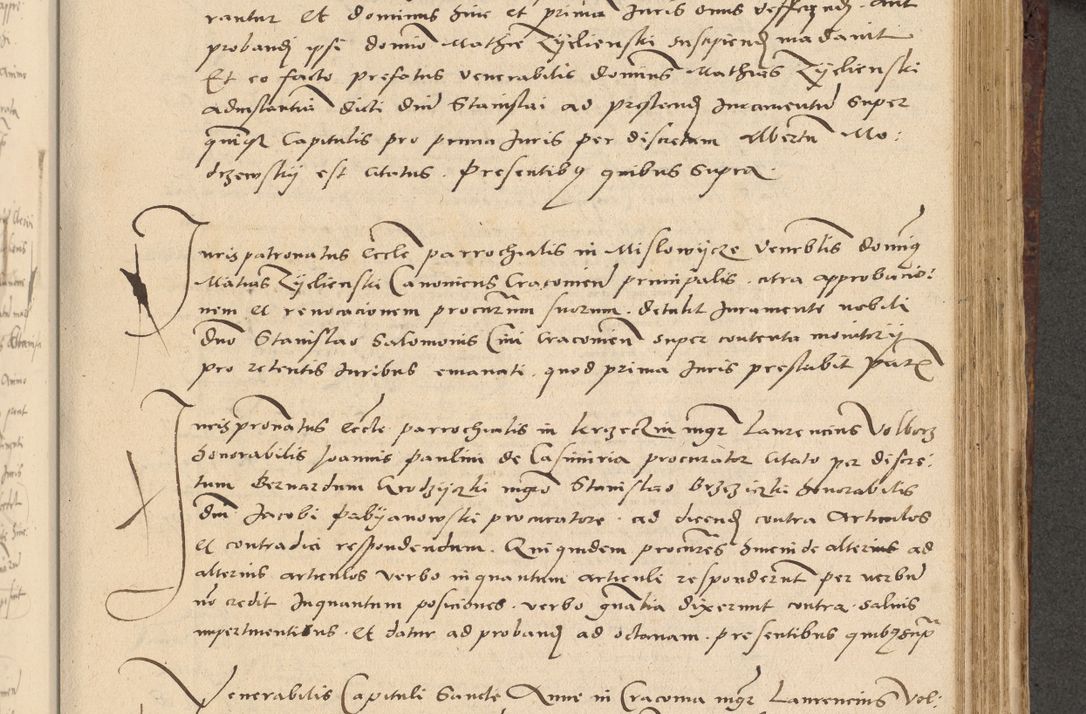 rantur Et dominus hinc et prima Juris onus
probandj ipsi domino Mathie Zyelienski mandavit
Et eo facto prefatus venerabilis dominus Mathias Zyelienski
ad instantiam dicti dni Stanislai ad prestandj Juramentum super
Capitulis pro prima Juris per discretum Albertum Mo:
drzewskij est citatus. Presentibq quibus supra.
Jurispatronatus Eccle parrochialis in Mislowycze Venerblis dominq
Matias Zyelienski Canonicus Cracovien principalis. citra approbacio:
nem et revocacionem procurum suorum. detulit Juramento nobili
dno Stanislao Salomonis Civi Cracovien super contenta monitorij
pro retentis Juribus emanati. quod prima Juris prestabit
Jurispronatus Eccle parrochialis in mgr Laurencius Volborz
honorabilis Joannis Paulini de Casimiria procurator citato per discre:
tum Bernardum Grodzyczki mgro Stanislao honorabilis
dni Jacobi Pabyanowski procuratore. ad dicendj contra Articulos
et contradici respondendum. Qui quidem procures hincinde alterius ad
alterius articulos verbo inquantum articuli responderunt per verbum
no credit Inquantum posiciones. verbo gnalia dixerunt contra. salvis
impertinentibus. Et datur ad probandj ad octavam. presentibus quibq supra
Venerabilis Capituli Sancte Anne in Cracovia mgr Laurencius Vol: